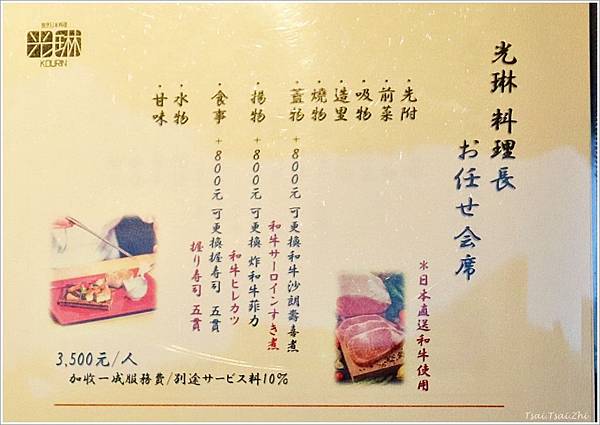 割烹日本料理
光琳
KOURIN
光琳 料理長
お任せ会席
・先附
・前菜
・吸物
・造里
・燒物
・蓋物 +800元 可更換和牛沙朗壽喜煮
和牛サーロインすき煮
・揚物 +800元 可更換 炸和牛菲力
和牛ヒレカツ
・食事 +800元 可更換握壽司 五貫
握り寿司 五貫
・水物
・甘味
※日本直送和牛使用
3,500元/人
加收一成服務費/別途サービス料10%
Tsai.Tsai.Zhi